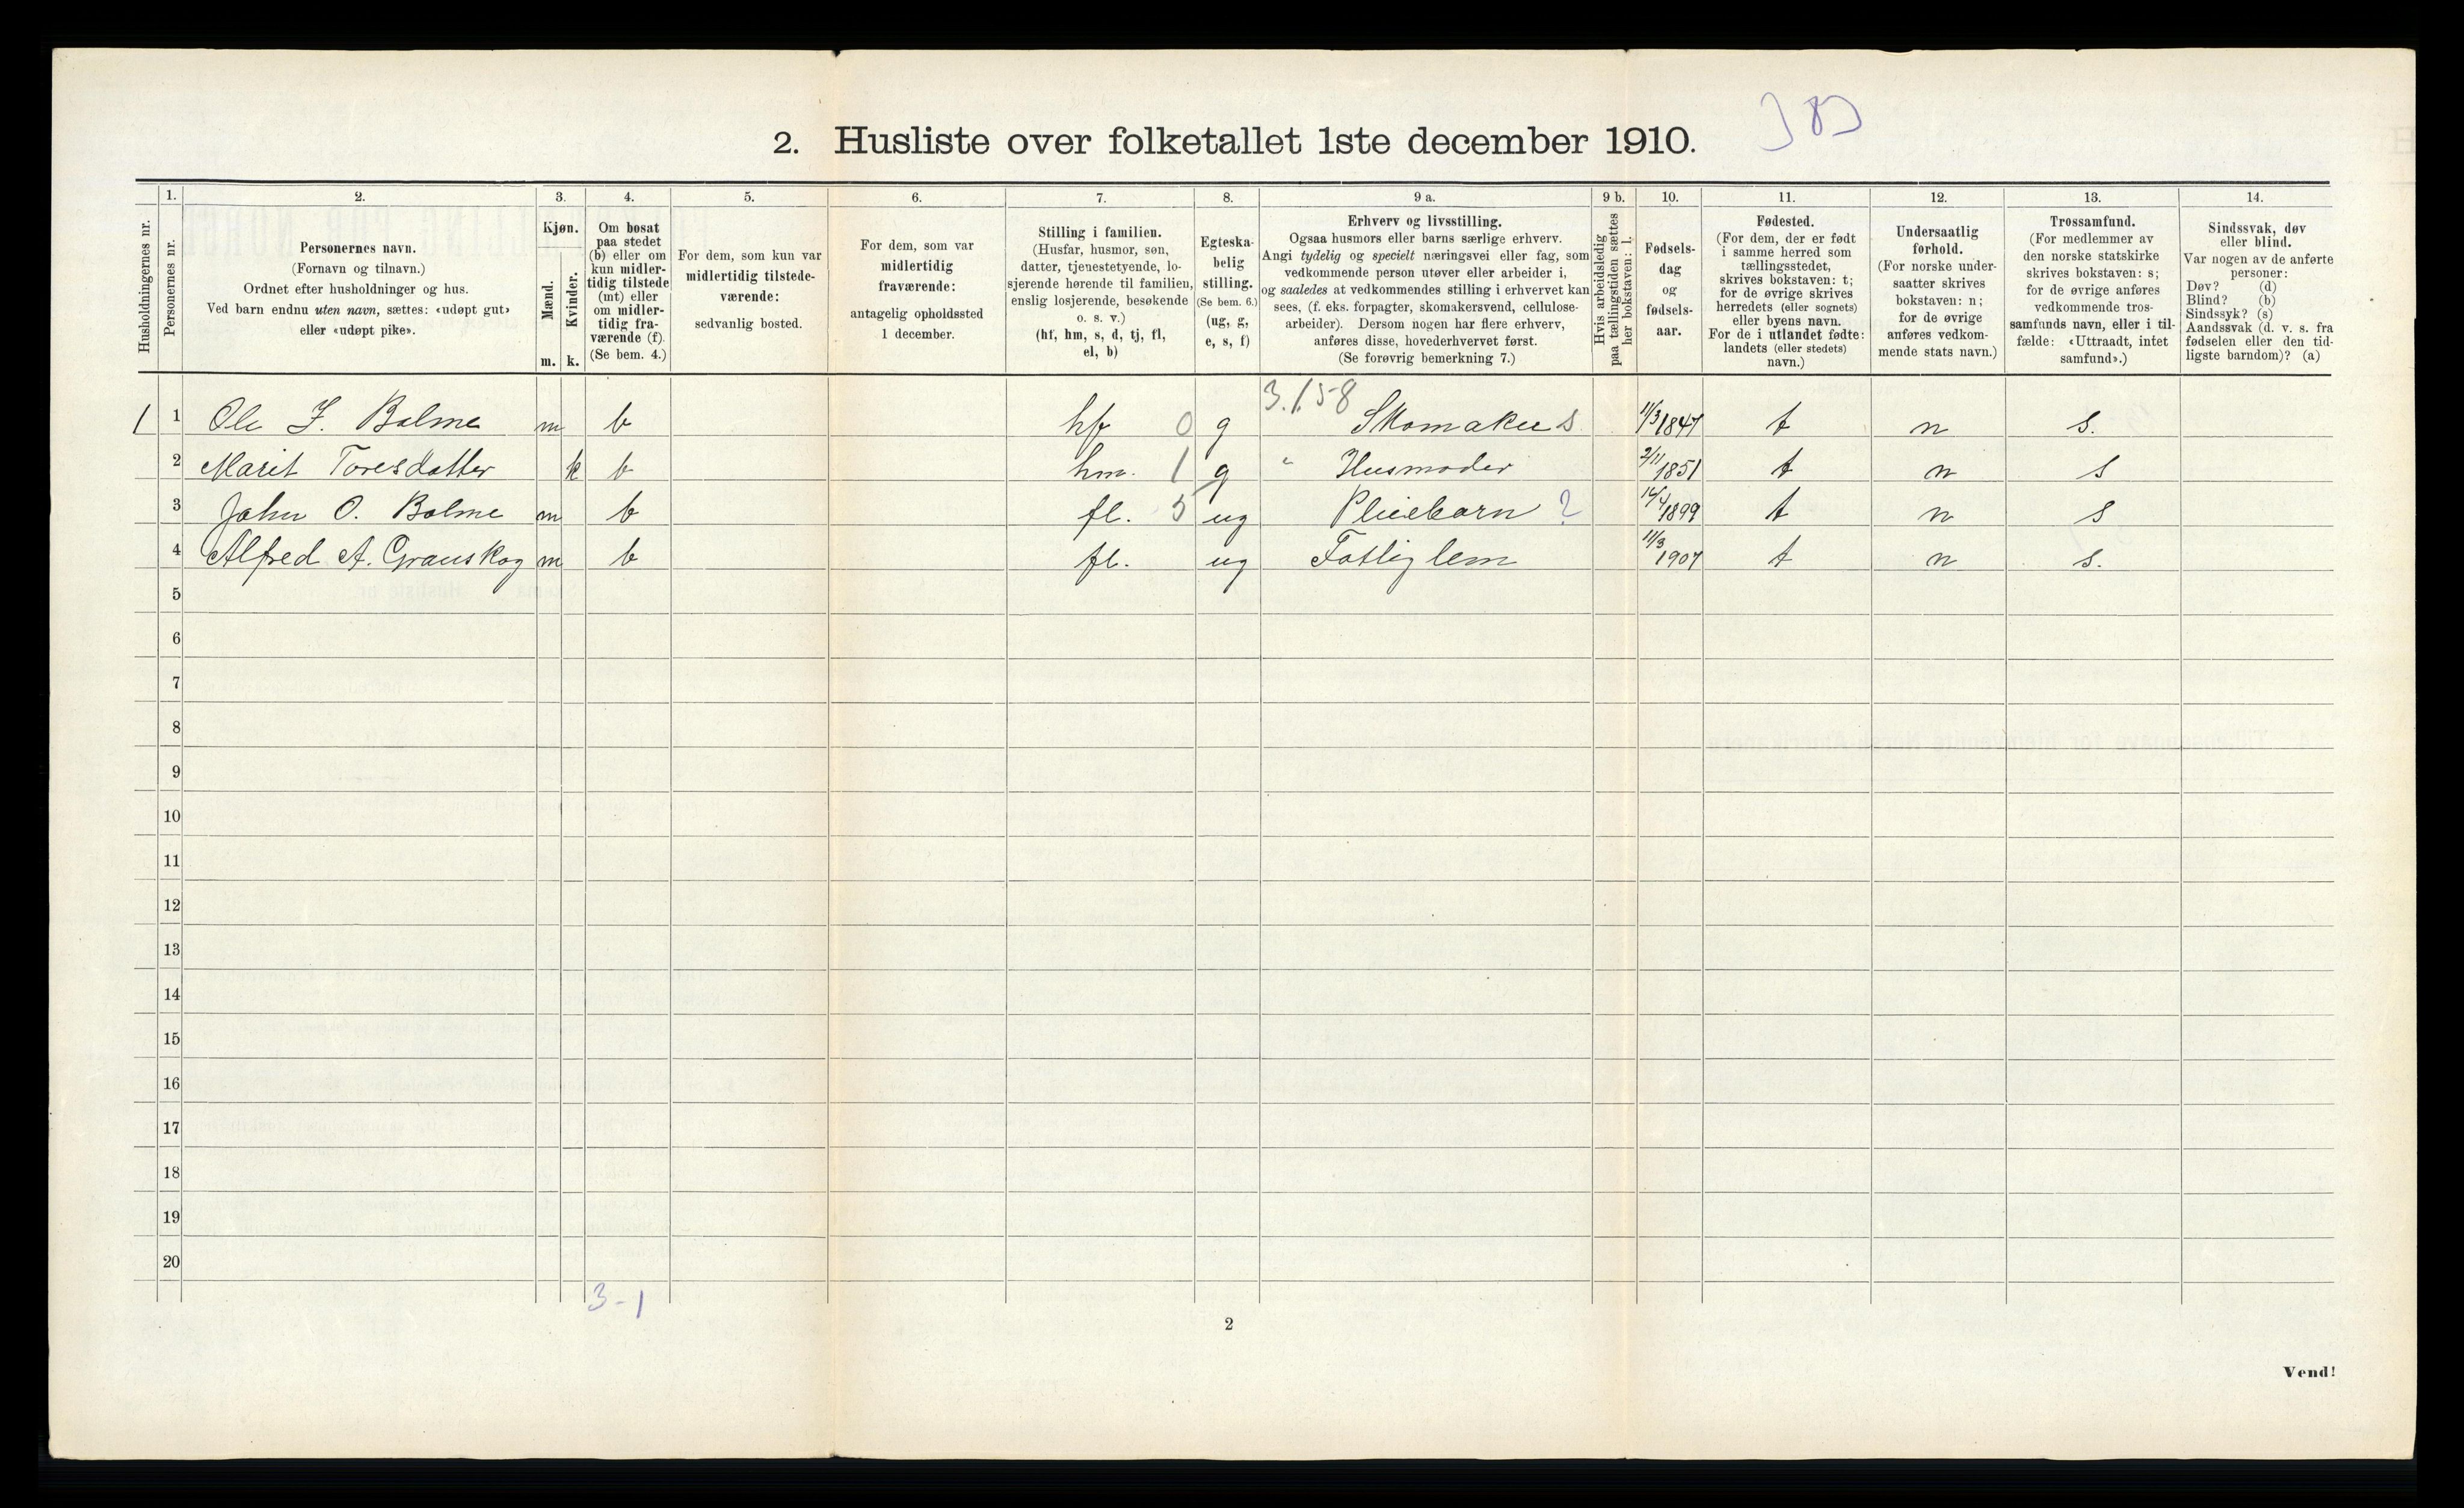 2. Husliste over folketallet 1ste december 1910.
1. 2. 3. 4. 5. 6. 7. 8. 9 a. 9 b. 10. 11. 12. 13. 14.
Husholdningernes nr.
Personernes nr.
Personernes navn.
(Fornavn og tilnavn.)
Ordnet efter husholdninger og hus.
Ved barn endnu uten navn, sættes: «udøpt gut»
eller «udøpt pike».
Kjøn.
Mænd.
m.
Kvinder.
k.
Om bosat
paa stedet
(b) eller om
kun midler-
tidig tilstede
(mt) eller
om midler-
tidig fra-
værende (f).
(Se bem. 4.)
For dem, som kun var
midlertidig tilstede-
værende:
sedvanlig bosted.
For dem, som var
midlertidig
fraværende:
antagelig opholdssted
1 december.
Stilling i familien.
(Husfar, husmor, søn,
datter, tjenestetyende, lo-
sjerende hørende til familien,
enslig losjerende, besøkende
o. s. v.)
(hf, hm, s, d, tj, fl,
el, b)
Egteska-
belig
stilling.
(Se bem. 6.)
(ug, g,
e, s, f)
Erhverv og livsstilling.
Ogsaa husmors eller barns særlige erhverv.
Angi tydelig og specielt næringsvei eller fag, som
vedkommende person utøver eller arbeider i,
og saaledes at vedkommendes stilling i erhvervet kan
sees, (f. eks. forpagter, skomakersvend, cellulose-
arbeider). Dersom nogen har flere erhverv,
anføres disse, hovederhvervet først.
(Se forøvrig bemerkning 7.)
Hvis arbeidsledig
paa tællingstiden sættes
her bokstaven: l.
Fødsels-
dag
og
fødsels-
aar.
Fødested.
(For dem, der er født
i samme herred som
tællingsstedet,
skrives bokstaven: t;
for de øvrige skrives
herredets (eller sognets)
eller byens navn.
For de i utlandet fødte:
landets (eller stedets)
navn.)
Undersaatlig
forhold.
(For norske under-
saatter skrives
bokstaven: n;
for de øvrige
anføres vedkom-
mende stats navn.)
Trossamfund.
(For medlemmer av
den norske statskirke
skrives bokstaven: s;
for de øvrige anføres
vedkommende tros-
samfunds navn, eller i til-
fælde: «Uttraadt, intet
samfund».)
Sindssvak, døv
eller blind.
Var nogen av de anførte
personer:
Døv? (d)
Blind? (b)
Sindssyk? (s)
Aandssvak (d. v. s. fra
fødselen eller den tid-
ligste barndom)? (a)
3.1.58
1 1 Ole J. Bolme m b hf 0 g Skomaker s 11/3 1847 t n s.
2 Marit Toresdatter k b hm. 1 g " Husmoder 2/11 1851 t n s
3 John O. Bolme m b fl. 5 ug Pleiebarn ? 14/4 1899 t n s
4 Alfred A. Granskog m b fl. ug Fatliglem 11/3 1907 t n s.
5
6
7
8
9
10
11
12
13
14
15
16
17
18
19
20
3-1
2
Vend!